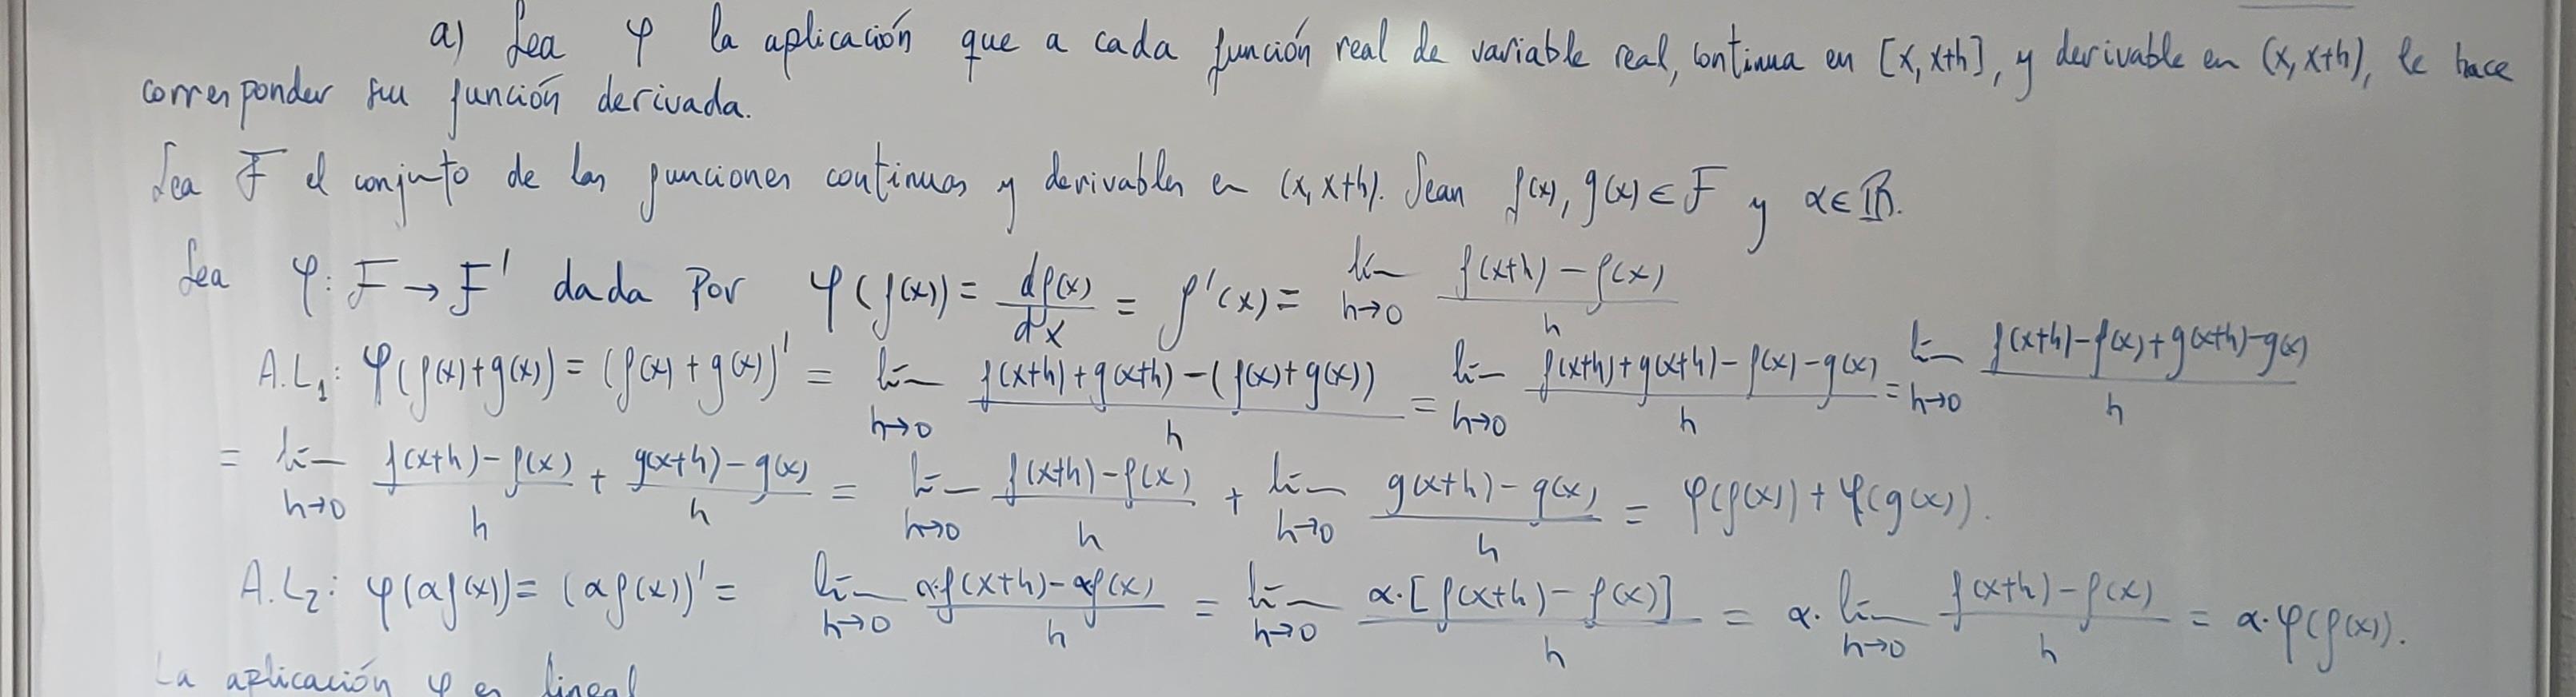 a) Sea φ la aplicación que a cada función real de variable real, continua en [x, x+h], y derivable en (x, x+h), le hace
corresponder su función derivada.
Sea F el conjunto de las funciones continuas y derivables en (x, x+h). Sean f(x), g(x) ∈ F y α ∈ ℝ.
Sea φ: F → F' dada por φ(f(x)) = df(x)/dx = f'(x) = lím h→0 (f(x+h) − f(x))/h
A.L₁: φ(f(x)+g(x)) = (f(x)+g(x))' = lím h→0 (f(x+h)+g(x+h)−(f(x)+g(x)))/h = lím h→0 (f(x+h)+g(x+h)−f(x)−g(x))/h = lím h→0 (f(x+h)−f(x)+g(x+h)−g(x))/h
= lím h→0 (f(x+h)−f(x))/h + (g(x+h)−g(x))/h = lím h→0 (f(x+h)−f(x))/h + lím h→0 (g(x+h)−g(x))/h = φ(f(x)) + φ(g(x)).
A.L₂: φ(αf(x)) = (αf(x))' = lím h→0 (α·f(x+h)−αf(x))/h = lím h→0 (α·[f(x+h)−f(x)])/h = α·lím h→0 (f(x+h)−f(x))/h = α·φ(f(x)).
La aplicación φ es lineal